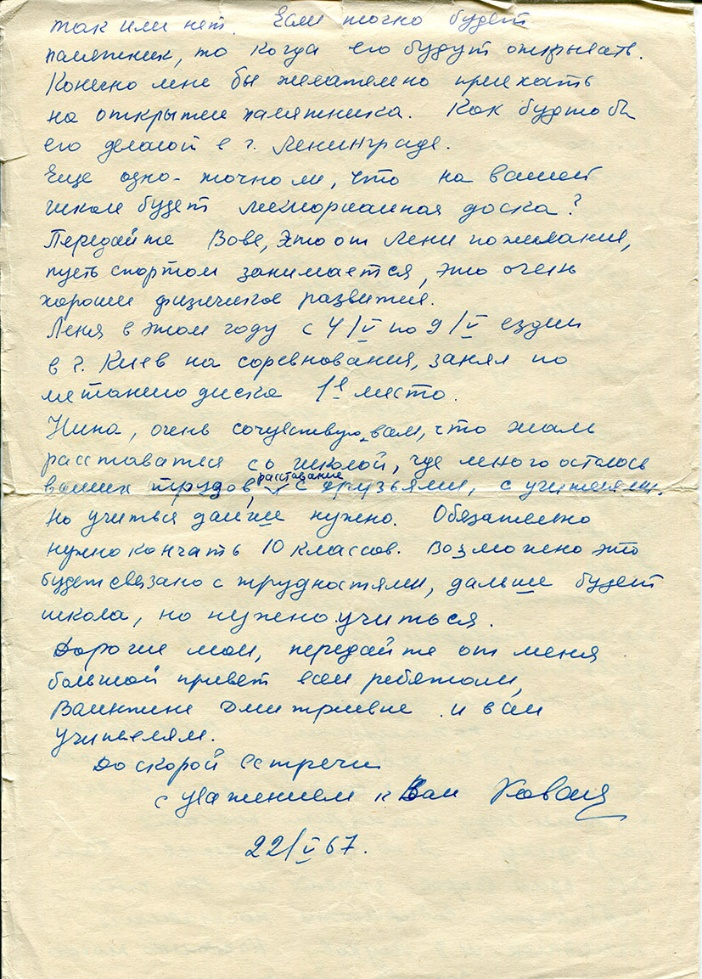 так или нет. Если точно будет
памятник, то когда его будут открывать.
Конечно мне бы желательно приехать
на открытии памятника. Как будто бы
его делают в г. Ленинграде.
Еще одно - точно ли, что на вашей
школе будет мемориальная доска?
Передайте Вове, это от Лени пожелания,
пусть спортом занимается, это очень
хорошее физическое развитие.
Леня в этом году с 4/V по 9/V ездил
в г. Киев на соревнования, занял по
метанию диска 1е место.
Нина, очень сочувствую вам, что жаль
расставаться со школой, где много осталось
ваших трудов, расставание с друзьями, с учителями.
Но учиться дальше нужно. Обязательно
нужно кончать 10 классов. Возможно это
будет связано с трудностями, дальше будет
школа, но нужно учиться.
Дорогие мои, передайте от меня
большой привет всем ребятам,
Валентине Дмитриевне и всем
учителям.
До скорой встречи
с уважением к Вам
22/V 67.